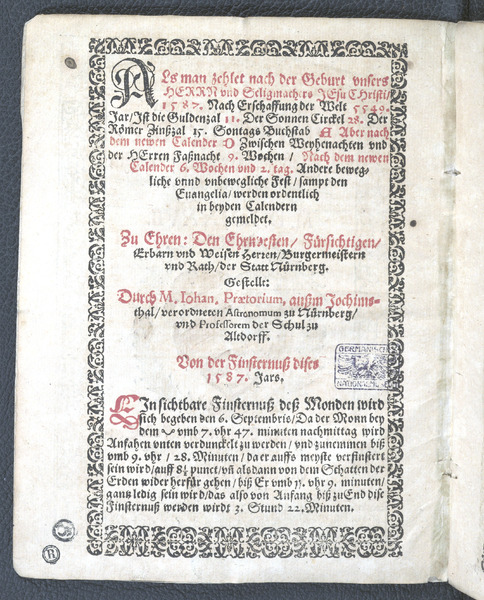 Als man zehlet nach der Geburt vnsers
HERRN vnd Seligmachers JEsu CHristi/
1587. Nach Erschaffung der Welt 5549.
Jar/Ist die Guldenzal 11. Der Sonnen Circkel 28. Der
Römer Zinßzal 15. Sontags Buchstab A Aber nach
dem newen Calender D Zwischen Weyhenachten vnd
der HErren Faßnacht 9. Wochen/ Nach dem newen
Calender 6. Wochen vnd 2. tag. Andere beweg-
liche vnnd vnbewegliche Fest/ sampt den
Euangelia/ werden ordentlich
in beyden Calendern
gemeldet.
Zu Ehren: Den Ehrnvesten/ Fürsichtigen/
Erbarn vnd Weisen Herren/Burgermeistern
vnd Rath/der Statt Nürnberg.
Gestellt:
Durch M. Johan. Prætorium, außm Jochims-
thal/verordneten Astronomum zu Nürnberg/
vnd Professorem der Schul zu
Altdorff.
Von der Finsternuß dises
1587. Jars.
EIn sichtbare Finsternuß deß Monden wird
sich begeben den 6. Septembris/Da der Monn bey
dem vmb 7. vhr 47. minuten nachmittag wird
Anfahen vnten verdunckelt zu werden/ vnd zunemmen biß
vmb 9. vhr/ 28. Minuten/da er auffs meyste verfinstert
sein wird/auff 8½ punct/vñ alsdann von dem Schatten der
Erden wider herfür gehen/ biß Er vmb 11. vhr 9. minuten/
gans ledig sein wird/das also von Anfang biß zu End dise
Finsternuß werden wird: 3. Stund 22. Minuten.
GERMANISCH
NATIONALMUSEUM
R